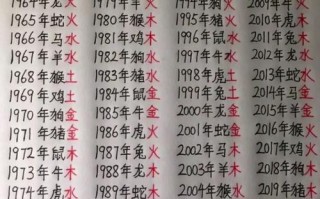 1964年龙火 1979年羊火 1994年狗火 2009年牛火
1965年蛇火 1980年猴木 1995年猪火 2010年虎木
1966年马水 1981年鸡木 1996年鼠水 2011年兔木
1967年羊水 1982年狗水 1997年牛水 2012年龙水
1968年猴土 1983年猪水 1998年虎土 2013年蛇水
1969年鸡土 1984年鼠金 1999年兔土 2014年马金
1970年狗金 1985年牛金 2000年龙金 2015年羊金
1971年猪金 1986年虎火 2001年蛇金 2016年猴火
1972年鼠木 1987年兔火 2002年马木 2017年鸡火
1973年牛木 1988年龙木 2003年羊木 2018年狗木
1974年虎水 1989年蛇木 2004年猴水 2019年猪木